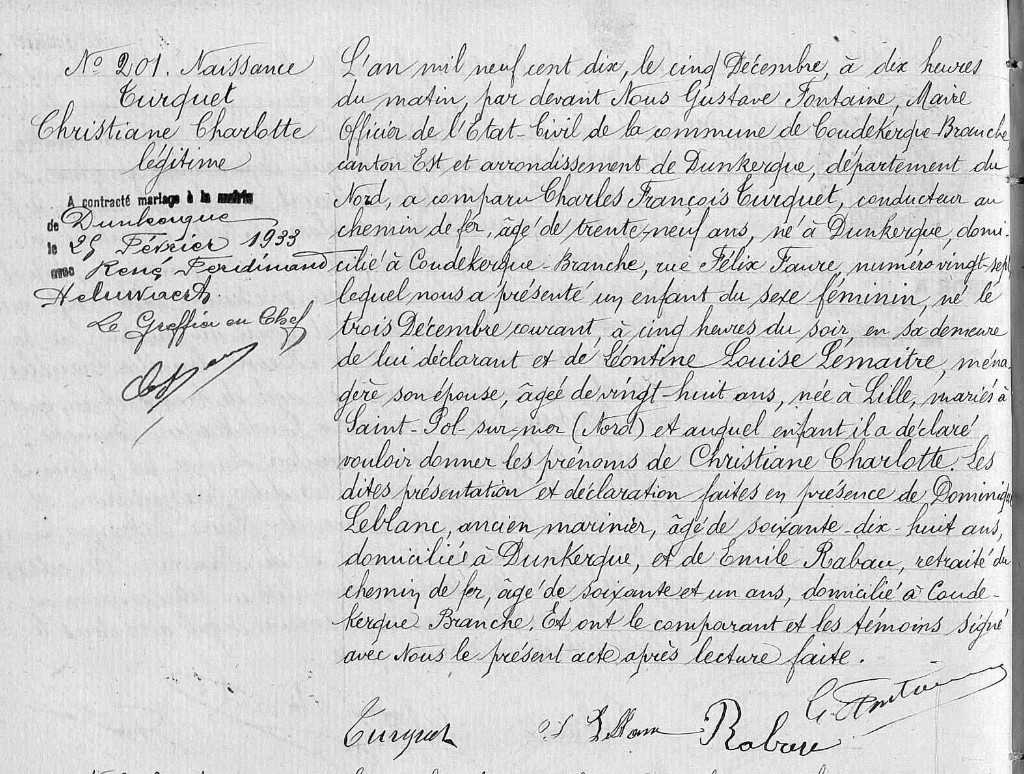 No 201. Naissance
Turquet
Christiane Charlotte
légitime
A contracté mariage à la mairie
de Dunkerque
le 25 Février 1933
avec René Ferdinand
Le Greffier en Chef
L'an mil neuf cent dix, le cinq Décembre, à dix heures
du matin, par devant Nous Gustave Fontaine, Maire
Officier de l'Etat-Civil de la commune de Coudekerque-Branche
canton Est et arrondissement de Dunkerque, département du
Nord, a comparu Charles François Turquet, conducteur au
chemin de fer, âgé de trente-neuf ans, né à Dunkerque, domi-
cilié à Coudekerque-Branche, rue Félix Faure, numéro vingt sept
lequel nous a présenté un enfant du sexe féminin, né le
trois Décembre courant, à cinq heures du soir, en sa demeure
de lui déclarant et de Léontine Louise Lemaitre, ména-
gère son épouse, âgée de vingt-huit ans, née à Lille, mariés à
Saint-Pol-sur-mer (Nord) et auquel enfant il a déclaré
vouloir donner les prénoms de Christiane Charlotte. Les
dites présentation et déclaration faites en présence de Dominique
Leblanc, ancien marinier, âgé de soixante-dix-huit ans,
domicilié à Dunkerque, et de Emile Rabau, retraité du
chemin de fer, âgé de soixante et un ans, domicilié à Coude-
kerque Branche. Et ont le comparant et les témoins signé
avec Nous le présent acte après lecture faite.
Turquet Rabau G. Fontaine